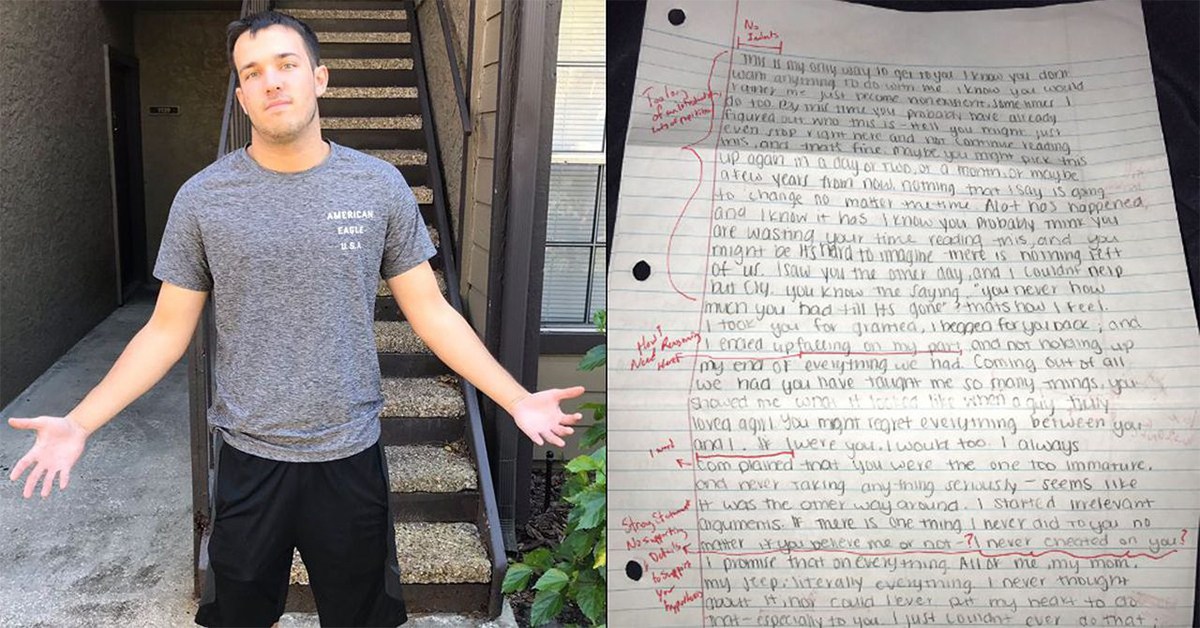 AMERICAN
EAGLE
U.S.A
No
Indents
This is my only way to get to you I know you dont
want anything to do with me. I know you would
rather me just become nonexistent, sometimes I
do too. By this time you probably have already
figured out who this is - Hell you might just
even stop right here and not continue reading
this, and thats fine. maybe you might pick this
up again in a day or two, or a month, or maybe
a few years from now. nothing that I say is going
to change no matter the time. Alot has happened,
and I know it has. I know you probably think you
are wasting your time reading this, and you
might be. Its hard to imagine there is nothing left
of us. I saw you the other day, and I couldn't help
but cry. you know the saying, "you never how
much you had till its gone", thats how I feel.
I took you for granted, I begged for you back, and
I ended up falling on my part, and not holding up
my end of everything we had. Coming out of all
we had you have taught me so many things, you
showed me what it looked like when a guy fully
loved a girl. You might regret everything between you
and I. If I were you, I would too. I always
complained that you were the one too immature,
and never taking anything seriously - seems like
it was the other way around. I started irrelevant
arguments. If there is one thing I never did to you no
matter if you believe me or not -? I never cheated on you?
I promise that on everything. All of me, my mom,
my step: literally everything. I never thought
about it, nor could I ever put my heart to do
that - especially to you. I just couldnt ever do that
Too long
of introduction,
Lots of repetition
How?
Need Reasoning
Here
I word
Strong Statement
No supporting
Details
to support
Your
hypothesis